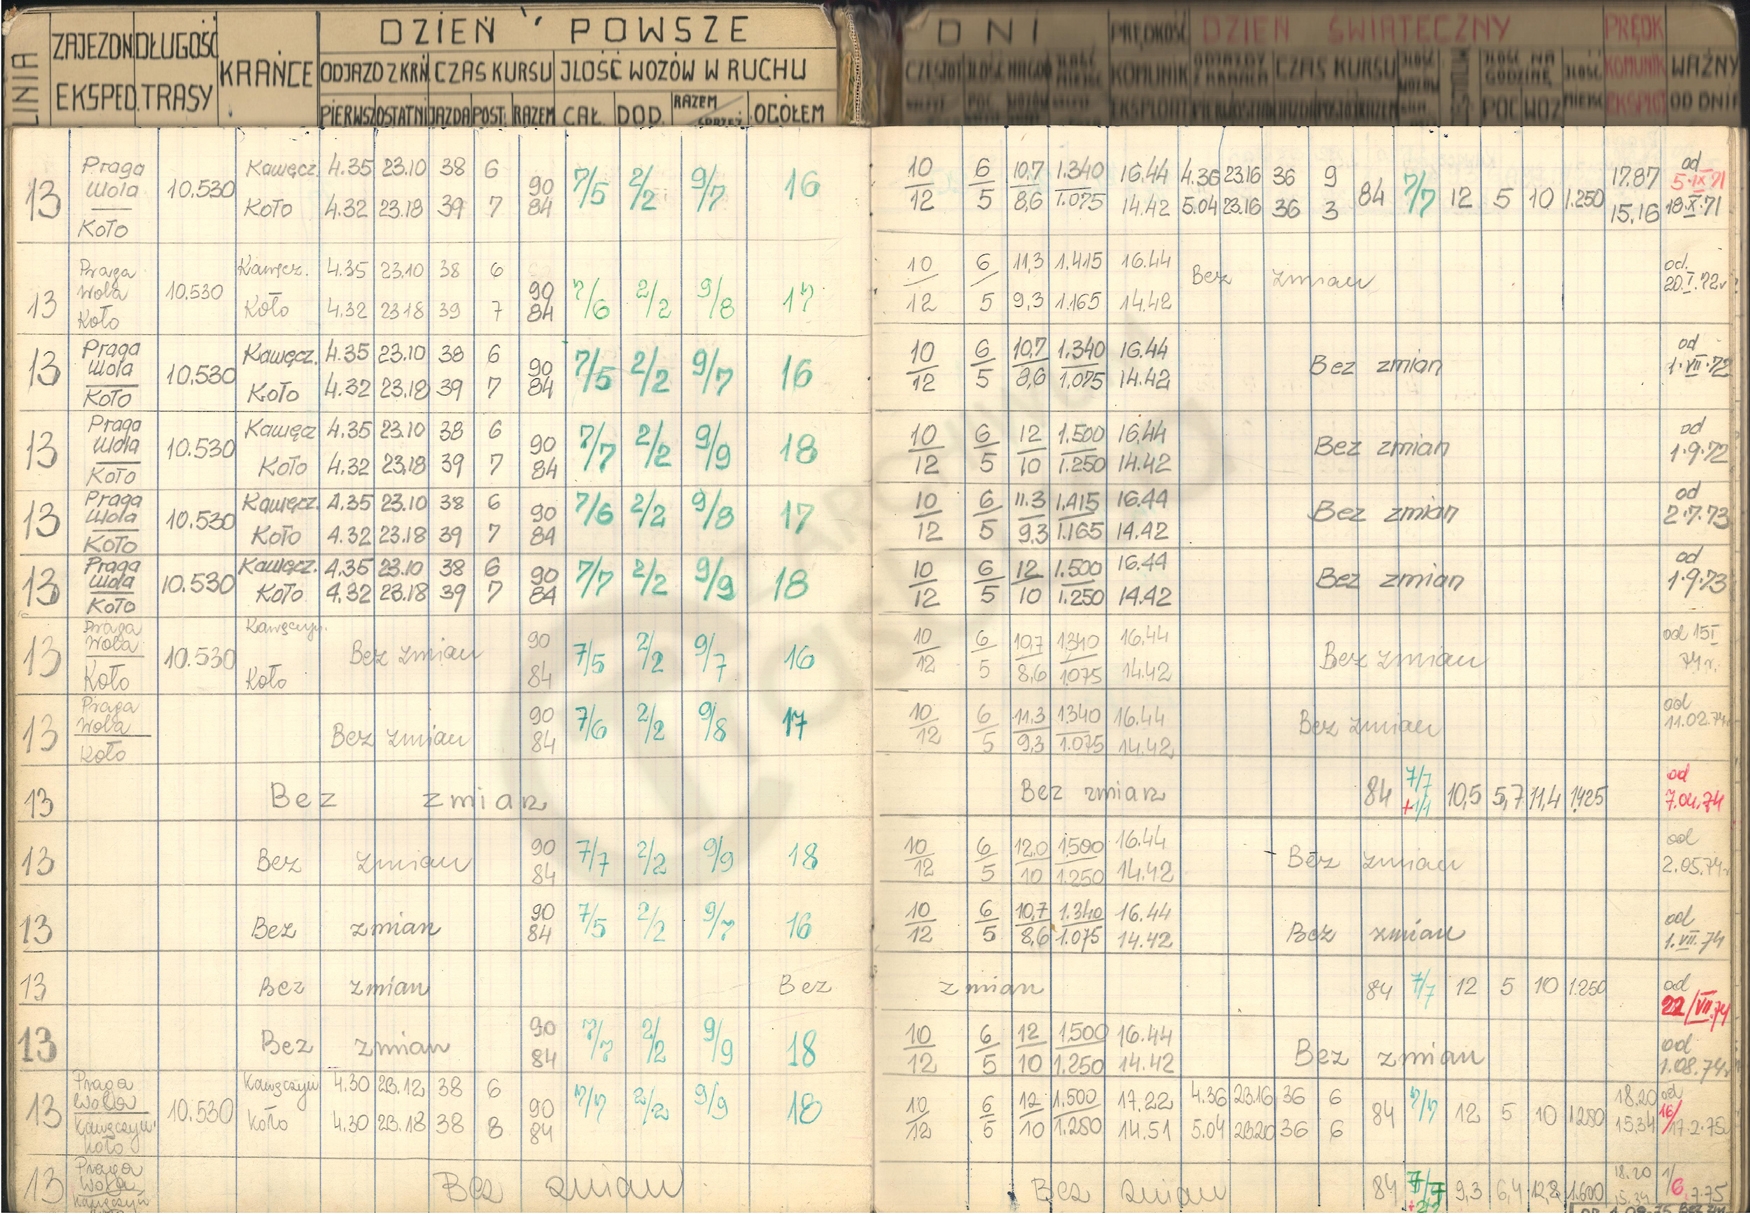 LINIA ZAJEZDN. EKSPED. DŁUGOŚĆ TRASY KRAŃCE DZIEŃ POWSZE DNI PRĘDKOŚĆ KOMUNIK EKSPLOAT DZIEŃ ŚWIĄTECZNY PRĘDK KOMUNIK EKSPLO WAŻNY OD DNIA
ODJAZD Z KRŃ CZAS KURSU ILOŚĆ WOZÓW W RUCHU CZAS KURSU ILOŚĆ NA GODZINĘ
PIERWSZ OSTATNI JAZDA POST. RAZEM CAŁ. DOD. RAZEM OGÓŁEM POC WOZ
13 Praga Wola Koło 10.530 Kawęcz 4.35 23.10 38 6 90 7/5 2/2 9/7 16 10 6 10,7 1.340 16.44 4.36 23.16 36 9 84 7/7 12 5 10 1.250 17.87 od 5.IX.71
Koło 4.32 23.18 39 7 84 12 5 8,6 1.075 14.42 5.04 23.16 36 3 15,16 18.X.71
13 Praga Wola Koło 10.530 Kawęcz. 4.35 23.10 38 6 90 7/6 2/2 9/8 17 10 6 11,3 1.415 16.44 Bez zmian od 20.I.72r
Koło 4.32 23.18 39 7 84 12 5 9,3 1.165 14.42
13 Praga Wola Koło 10.530 Kawęcz. 4.35 23.10 38 6 90 7/5 2/2 9/7 16 10 6 10,7 1.340 16.44 Bez zmian od 1.VII.72
Koło 4.32 23.18 39 7 84 12 5 8,6 1.075 14.42
13 Praga Wola Koło 10.530 Kawęcz 4.35 23.10 38 6 90 7/7 2/2 9/9 18 10 6 12 1.500 16,44 Bez zmian od 1.9.72
Koło 4.32 23.18 39 7 84 12 5 10 1.250 14.42
13 Praga Wola Koło 10.530 Kawęcz. 4.35 23.10 38 6 90 7/6 2/2 9/8 17 10 6 11.3 1.415 16.44 Bez zmian od 2.7.73
Koło 4.32 23.18 39 7 84 12 5 9,3 1.165 14.42
13 Praga Wola Koło 10.530 Kawęcz. 4.35 23.10 38 6 90 7/7 2/2 9/9 18 10 6 12 1.500 16.44 Bez zmian od 1.9.73
Koło 4.32 23.18 39 7 84 12 5 10 1.250 14.42
13 Praga Wola Koło 10.530 Kawęczyn. Bez zmian 90 7/5 2/2 9/7 16 10 6 10,7 1340 16.44 Bez zmian od 15I 74r.
Koło 84 12 5 8,6 1075 14.42
13 Praga Wola Koło Bez zmian 90 7/6 2/2 9/8 17 10 6 11.3 1.340 16.44 Bez zmian od 11.02.74r
84 12 5 9,3 1.075 14.42
13 Bez zmian Bez zmian 84 7/7 +1/1 10,5 5,7 11,4 1.425 od 7.04.74
13 Bez zmian 90 7/7 2/2 9/9 18 10 6 12.0 1.500 16.44 Bez zmian od 2.05.74r
84 12 5 10 1.250 14.42
13 Bez zmian 90 7/5 2/2 9/7 16 10 6 10,7 1.340 16.44 Bez zmian od 1.VII.74
84 12 5 8,6 1.075 14.42
13 Bez zmian Bez zmian 84 7/7 12 5 10 1.250 od 22/VII.74
13 Bez zmian 90 7/7 2/2 9/9 18 10 6 12 1.500 16.44 Bez zmian od 1.08.74r
84 12 5 10 1.250 14.42
13 Praga Wola Kawęczyn Koło 10.530 Kawęczyn 4.30 23.12 38 6 90 7/7 2/2 9/9 18 10 6 12 1.500 17.22 4.36 23.16 36 6 84 7/7 12 5 10 1250 18.20 od 16/17.2.75r
Koło 4.30 23.18 38 8 84 12 5 10 1.250 14.51 5.04 23.20 36 6 15,34
13 Praga Wola Kawęczyn Bez zmian Bez zmian 84 7/7 +2/2 9,3 6,4 12,8 1.600 18.20 15.34 1/6.7.75